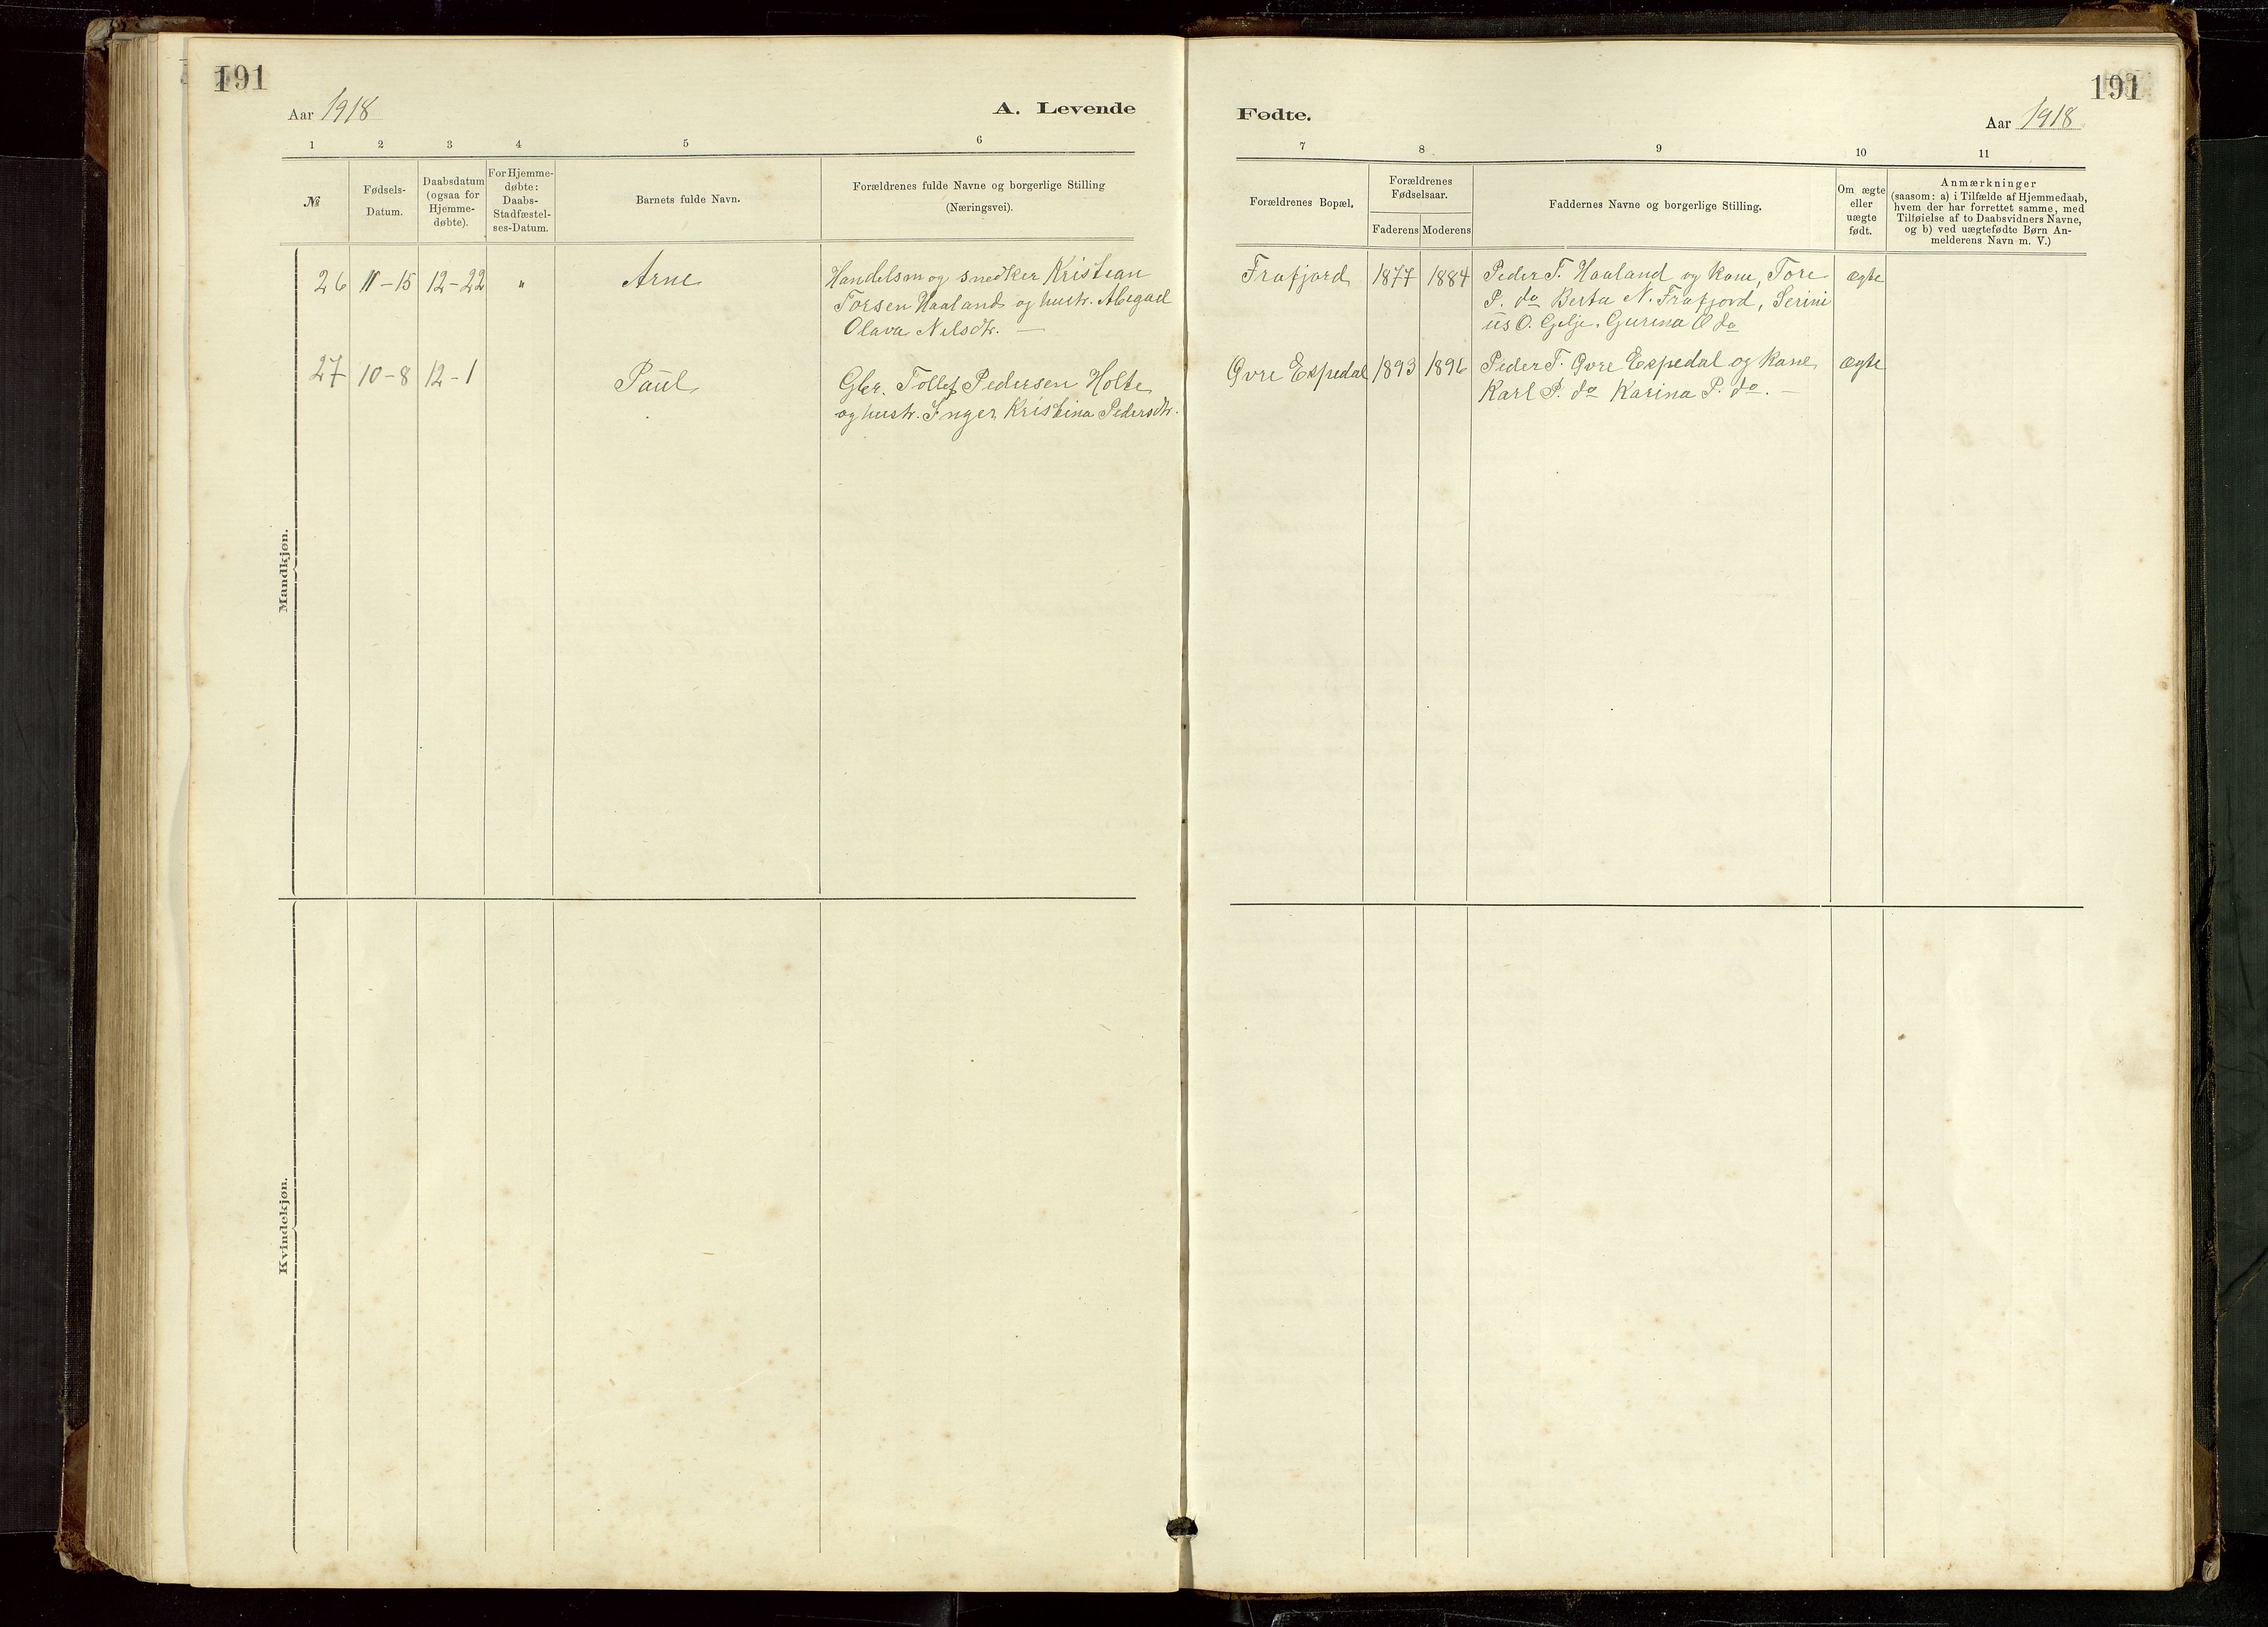 191
Aar 1918
A. Levende
1 2 3 4 5 6
№
Fødsels-
Datum.
Daabsdatum
(ogsaa for
Hjemme-
døbte).
For Hjemme-
døbte:
Daabs-
Stadfæstel-
ses-Datum.
Barnets fulde Navn.
Forældrenes fulde Navne og borgerlige Stilling
(Næringsvei).
Mandkjøn.
26 11-15 12-22 " Arne
Handelsm og snedker Kristian
Torsen Haaland og hustr. Abigael
Olava Nilsdtr. —
27 10-8 12-1 Paul
Gbr. Tollef Pedersen Holte
og hustr. Inger Kristina Pedersdtr.
Kvindekjøn.
191
Fødte.
Aar 1918
7 8 9 10 11
Forældrenes Bopæl.
Forældrenes
Fødselsaar.
Faderens Moderens
Faddernes Navne og borgerlige Stilling.
Om ægte
eller
uægte
født.
Anmærkninger
(saasom: a) i Tilfælde af Hjemmedaab,
hvem der har forrettet samme, med
Tilføielse af to Daabsvidners Navne,
og b) ved uægtefødte Børn An-
melderens Navn m. V.)
Frafjord 1877 1884 Peder T. Haaland og kone, Tore ægte
P. do Berta N. Frafjord, Serini
us O. Gilje. Gurina O do
Øvre Espedal 1893 1896 Peder T. Øvre Espedal og kone ægte
Karl P. do Karina P. do. —